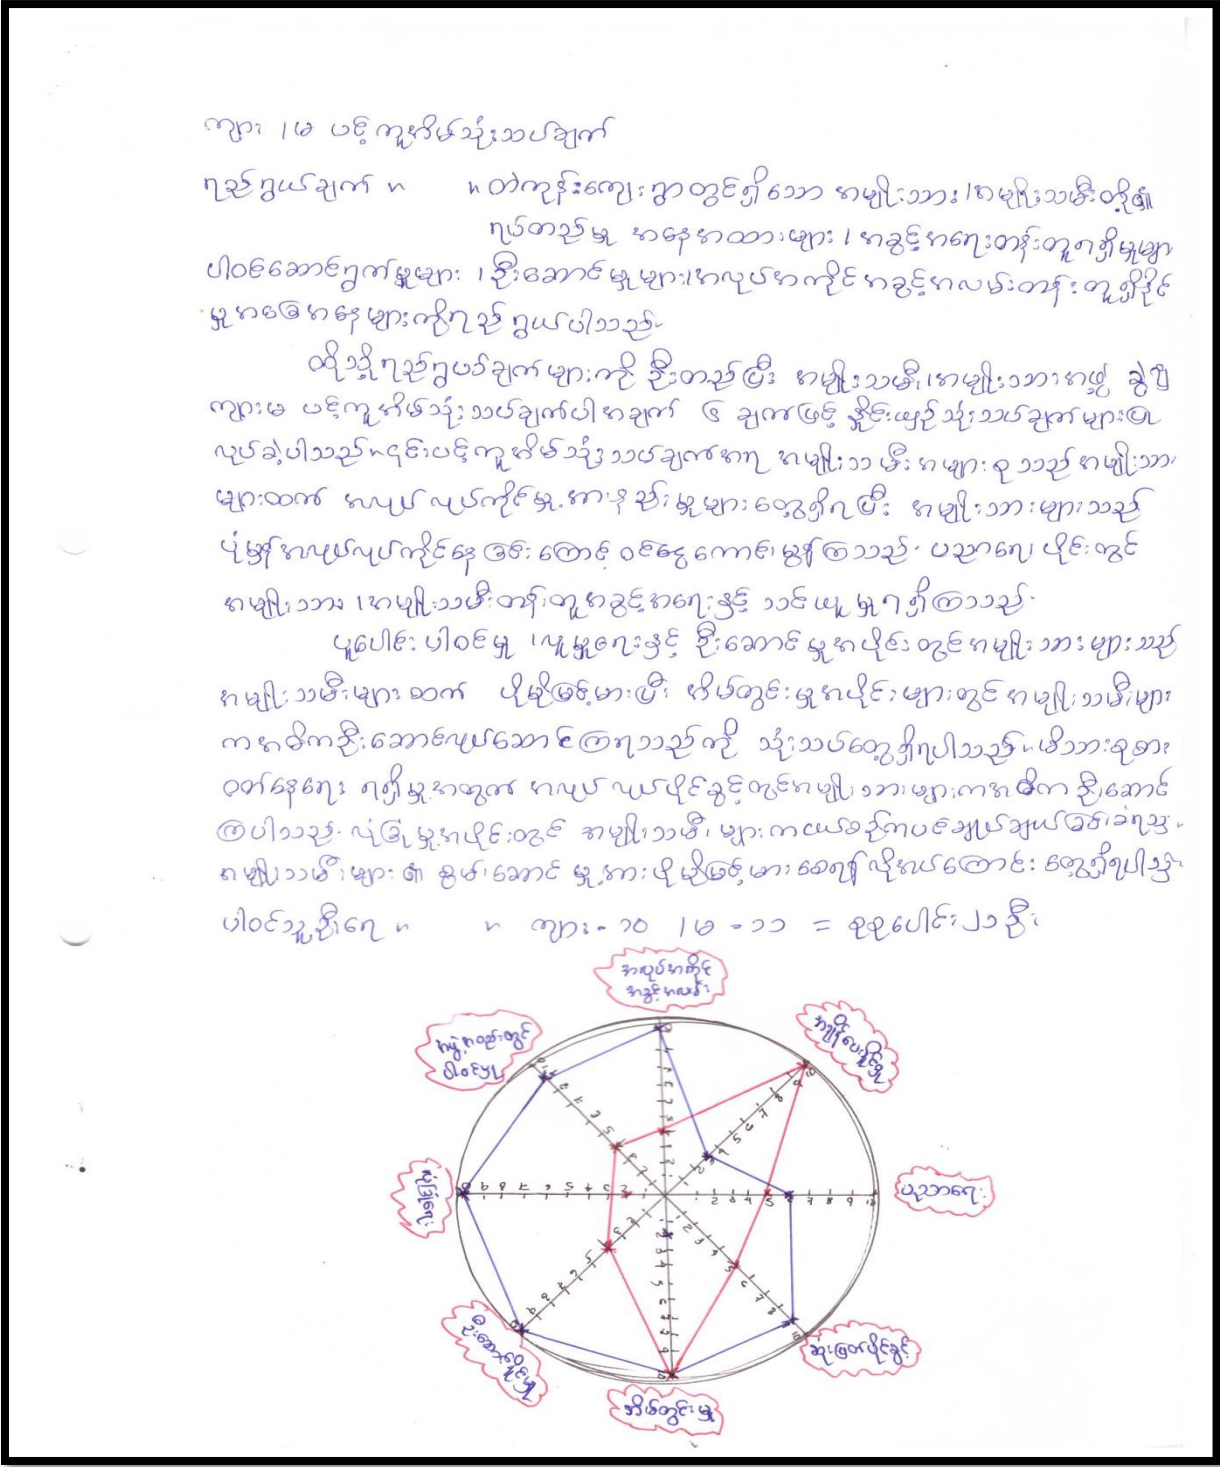 ကျား / မ ပင့်ကူအိမ်သုံးသပ်ချက်
ရည်ရွယ်ချက် ။ ။ တဲကုန်းကျေးရွာတွင်ရှိသော အမျိုးသား / အမျိုးသမီးတို့၏
ရပ်တည်မှု အနေအထားများ / အခွင့်အရေးတန်းတူရရှိမှုများ
ပါဝင်ဆောင်ရွက်မှုများ / ဦးဆောင်မှုများ၊ အလုပ်အကိုင်အခွင့်အလမ်းတန်းတူရှိနိုင်
မှုအခြေအနေများကိုရည်ရွယ်ပါသည်။
ထိုသို့ရည်ရွယ်ချက်များကို ဦးတည်ပြီး အမျိုးသမီး / အမျိုးသားအဖွဲ့ ခွဲ၍
ကျားမ ပင့်ကူအိမ်သုံးသပ်ချက်ပါအချက် ၆ ချက်ဖြင့် နှိုင်းယှဉ်သုံးသပ်ချက်များပြု
လုပ်ခဲ့ပါသည်။ ၎င်းပင့်ကူအိမ်သုံးသပ်ချက်အရ အမျိုးသမီးအများစုသည် အမျိုးသား
များထက် အလုပ်လုပ်ကိုင်မှုအားနည်းမှုများတွေ့ရှိရပြီး အမျိုးသားများသည်
ပုံမှန်အလုပ်လုပ်ကိုင်နေခြင်းကြောင့် ဝင်ငွေကောင်းမွန်ကြသည်။ ပညာရေးပိုင်းတွင်
အမျိုးသား / အမျိုးသမီးတန်းတူအခွင့်အရေးနှင့် သင်ယူမှုရရှိကြသည်။
ပူးပေါင်းပါဝင်မှု / လူမှုရေးနှင့် ဦးဆောင်မှုအပိုင်းတွင်အမျိုးသားများသည်
အမျိုးသမီးများထက် ပိုမိုမြင့်မားပြီး အိမ်တွင်းမှုအပိုင်းများတွင်အမျိုးသမီးများ
ကအဓိကဦးဆောင်လုပ်ဆောင်ကြရသည်ကို သုံးသပ်တွေ့ရှိရပါသည်။ မိသားစုစား
ဝတ်နေရေး ရရှိမှုအတွက် အလုပ်လုပ်ပိုင်ခွင့်တွင်အမျိုးသားများကအဓိကဦးဆောင်
ကြပါသည်။ လုံခြုံမှုအပိုင်းတွင် အမျိုးသမီးများကငယ်စဉ်ကပင်ချုပ်ချယ်ခြင်းခံရသူ
အမျိုးသမီးများ၏ စွမ်းဆောင်မှုအားပိုမိုမြင့်မားစေရန်လိုအပ်ကြောင်း တွေ့ရှိရပါသည်။
ပါဝင်သူဦးရေ ။ ။ ကျား - ၁၀ / မ - ၁၁ = စုစုပေါင်း ၂၁ ဦး
အလုပ်အကိုင်
အခွင့်အလမ်း
အဖွဲ့အစည်းတွင်
ပါဝင်မှု
အချိန်ပေးနိုင်မှု
လုံခြုံရေး
ပညာရေး
ဦးဆောင်နိုင်မှု
ဆုံးဖြတ်ပိုင်ခွင့်
အိမ်တွင်းမှု